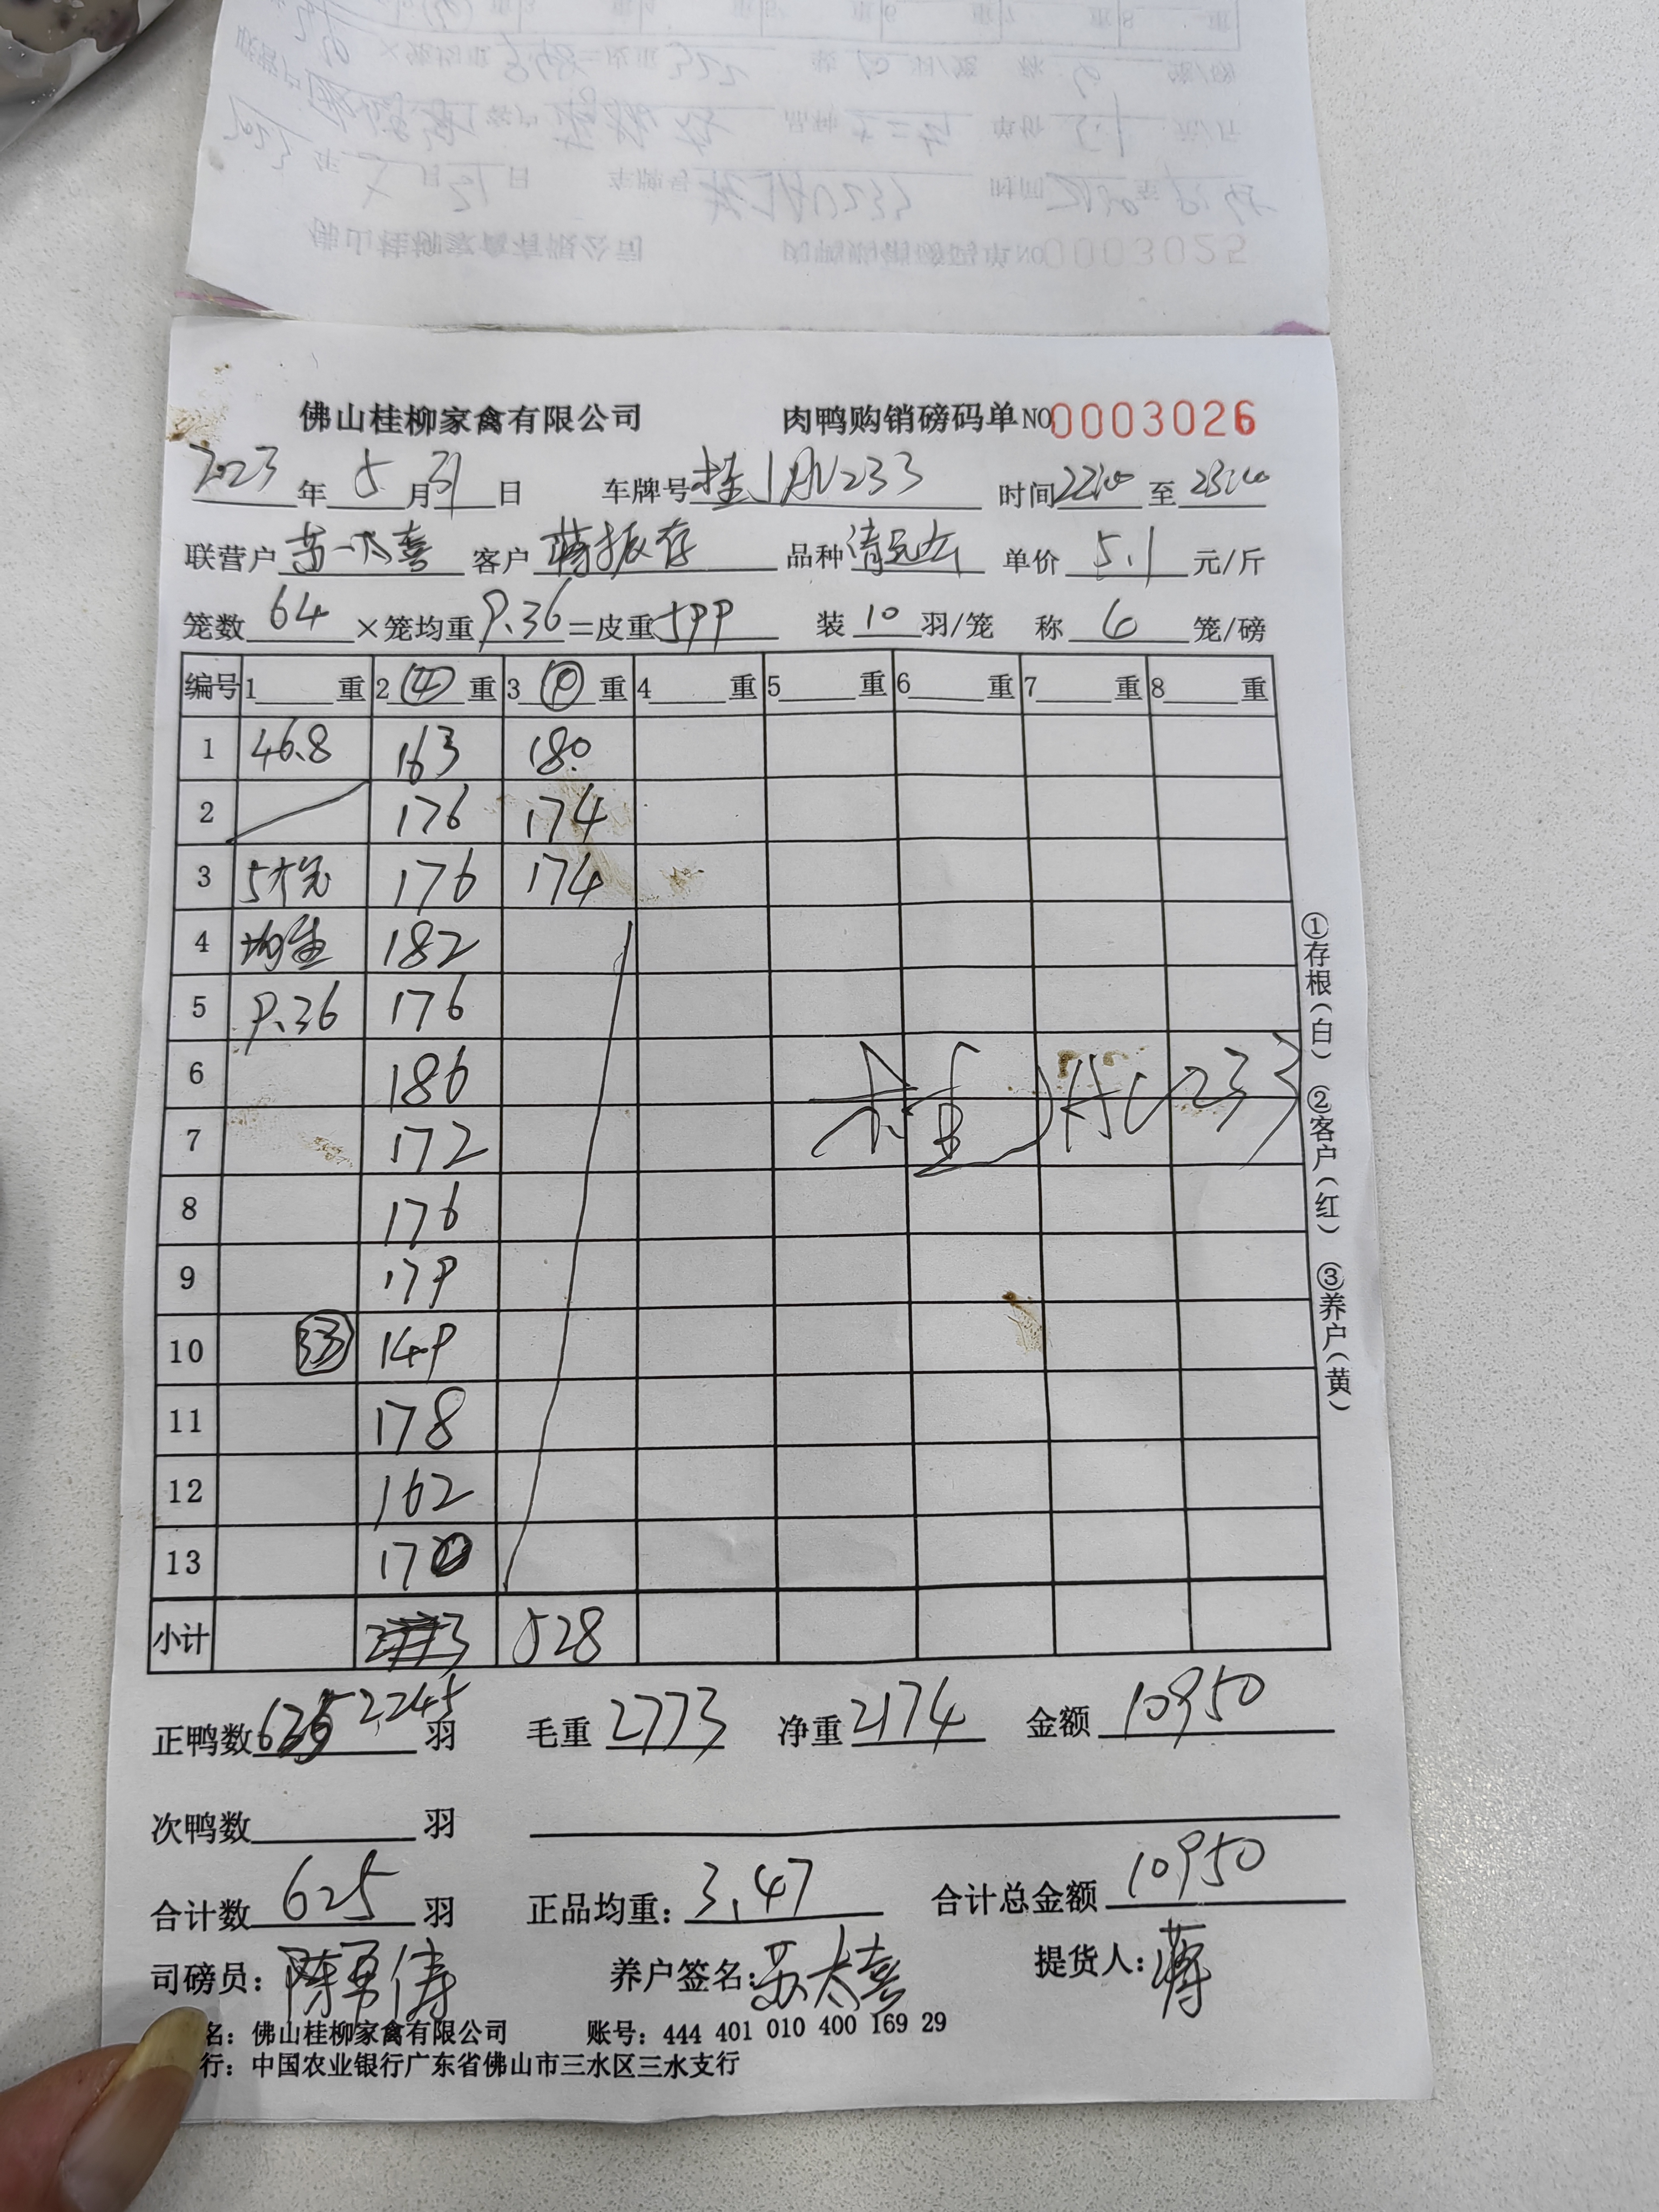 佛山桂柳家禽有限公司 肉鸭购销磅码单NO0003026
2023年5月31日 车牌号桂JAV233 时间 至
联营户苏太喜 客户蒋振存 品种 单价5.1元/斤
笼数64×笼均重9.36=皮重599 装10羽/笼 称6笼/磅
编号 1重 2④重 3⑨重 4重 5重 6重 7重 8重
1 46.8 163 180
2 176 174
3 176 174
4 均重 182
5 9.36 176
6 186
7 172
8 176
9 179
10 149
11 178
12 162
13 170
小计 528
2245
正鸭数羽 毛重2773 净重2174 金额10950
次鸭数羽
合计数625羽 正品均重:3.47 合计总金额10950
司磅员:陈勇伟 养户签名:苏太喜 提货人:蒋
名:佛山桂柳家禽有限公司 账号:444 401 010 400 169 29
行:中国农业银行广东省佛山市三水区三水支行
①存根(白) ②客户(红) ③养户(黄)